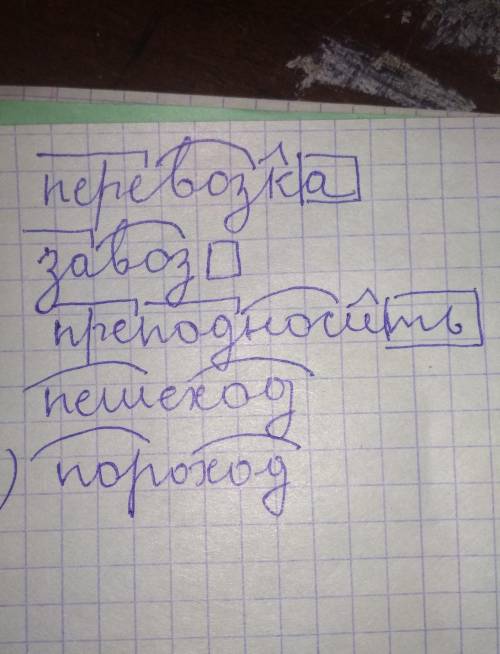 перевозка
завоз
преподносить
пешеход
) пороход